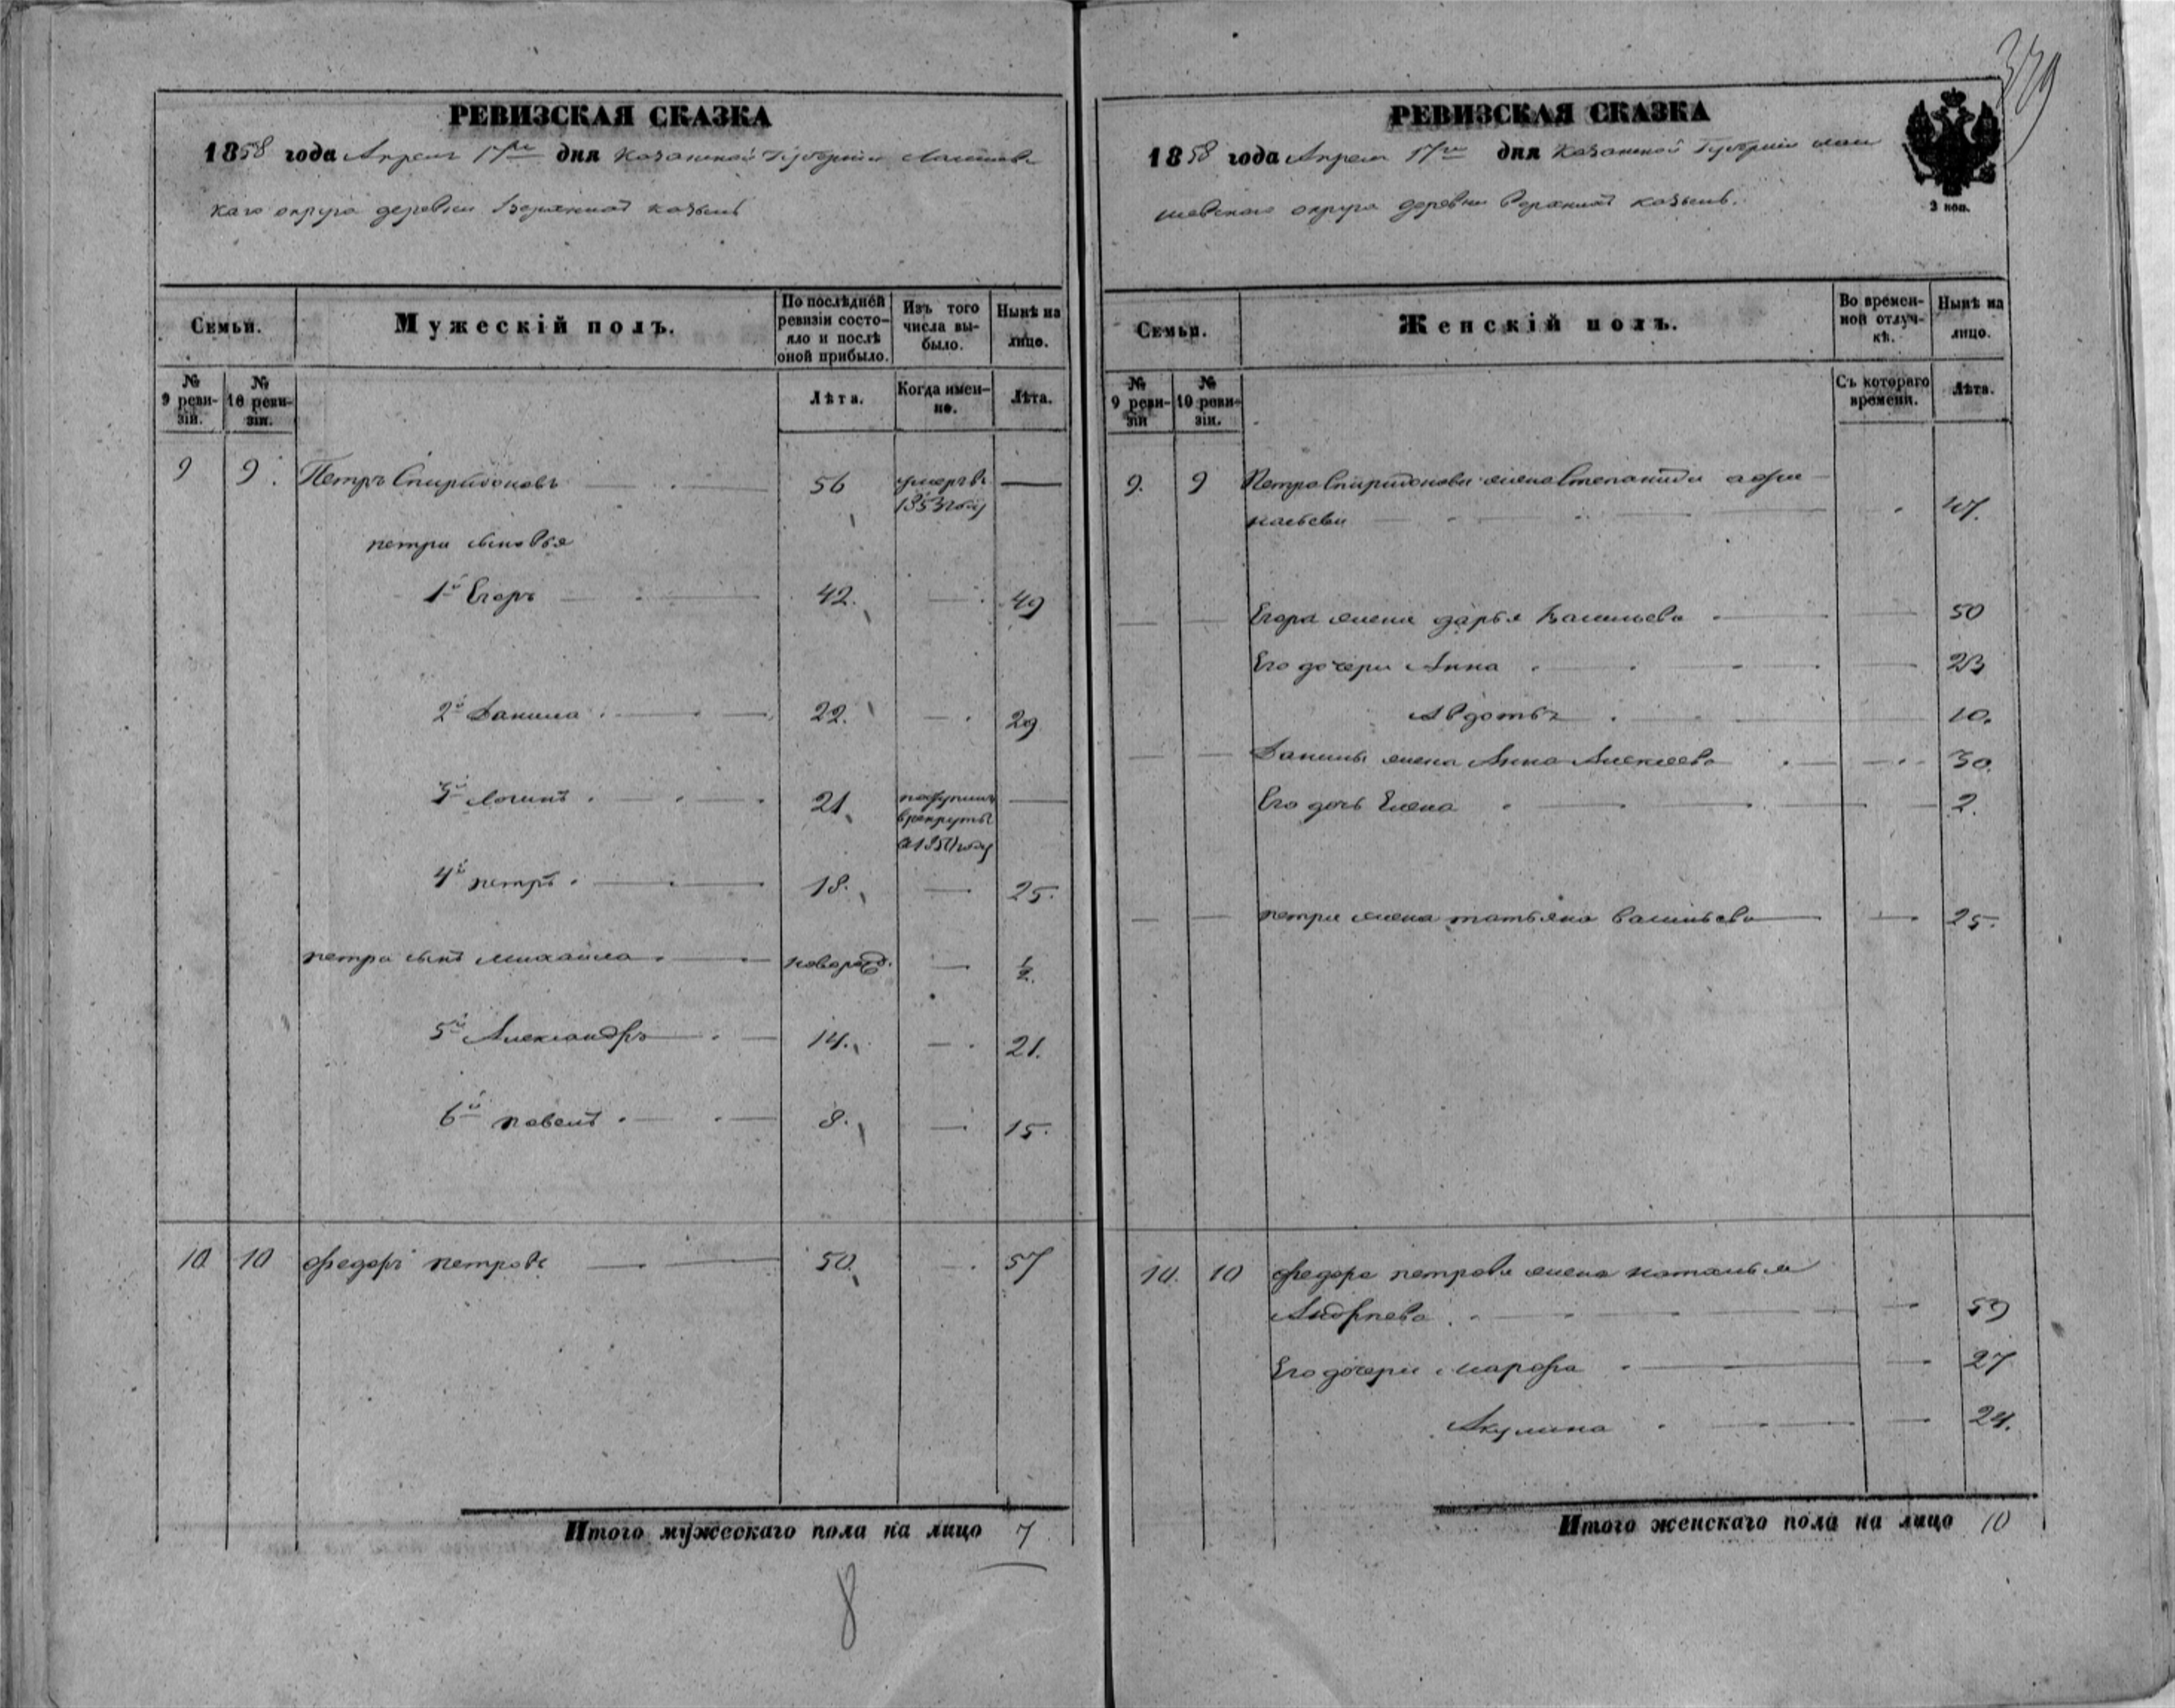 379
РЕВИЗСКАЯ СКАЗКА
1858 года Апреля 17го дня Казанской Губернии Лаишев
каго округа деревни Верхней Казыли
Семьи.
Мужескій полъ.
По послѣдней ревизіи состояло и послѣ оной прибыло.
Изъ того числа выбыло.
Нынѣ на лицо.
№ 9 ревизіи.
№ 10 ревизіи.
Лѣта.
Когда именно.
Лѣта.
9 9. Петръ Спиридоновъ 56 умеръ в 1853 году —
петра сыновья
1й Егоръ 42. — 49
2й Данила 22. — 29
3й Логинъ 21. поступилъ в рекруты в году —
4й петръ 18. — 25.
петра сынъ михаила новорожд. — ½
5й Александръ 14. — 21.
6й павелъ 8. — 15.
10 10 федоръ петровъ 50. — 57
Итого мужескаго пола на лицо 7
8
РЕВИЗСКАЯ СКАЗКА
1858 года Апреля 17го дня Казанской Губернии Лаи
шевскаго округа деревни Верхней Казыли.
3 коп.
Семьи.
Женскій полъ.
Во временной отлучкѣ.
Нынѣ на лицо.
№ 9 ревизіи
№ 10 ревизіи.
Съ котораго времени.
Лѣта.
9. 9 Петра Спиридонова жена Степанида афа
насьева 47.
Егора жена дарья Васильева 50
Его дочери Анна 23
Авдотья 10.
Данилы жена Анна Алексеева 30.
Его дочь Елена 2.
петра жена татьяна васильева 25.
10. 10 федора петрова жена наталья
Андреева 59
Его дочери марфа 27
Акулина 24.
Итого женскаго пола на лицо 10